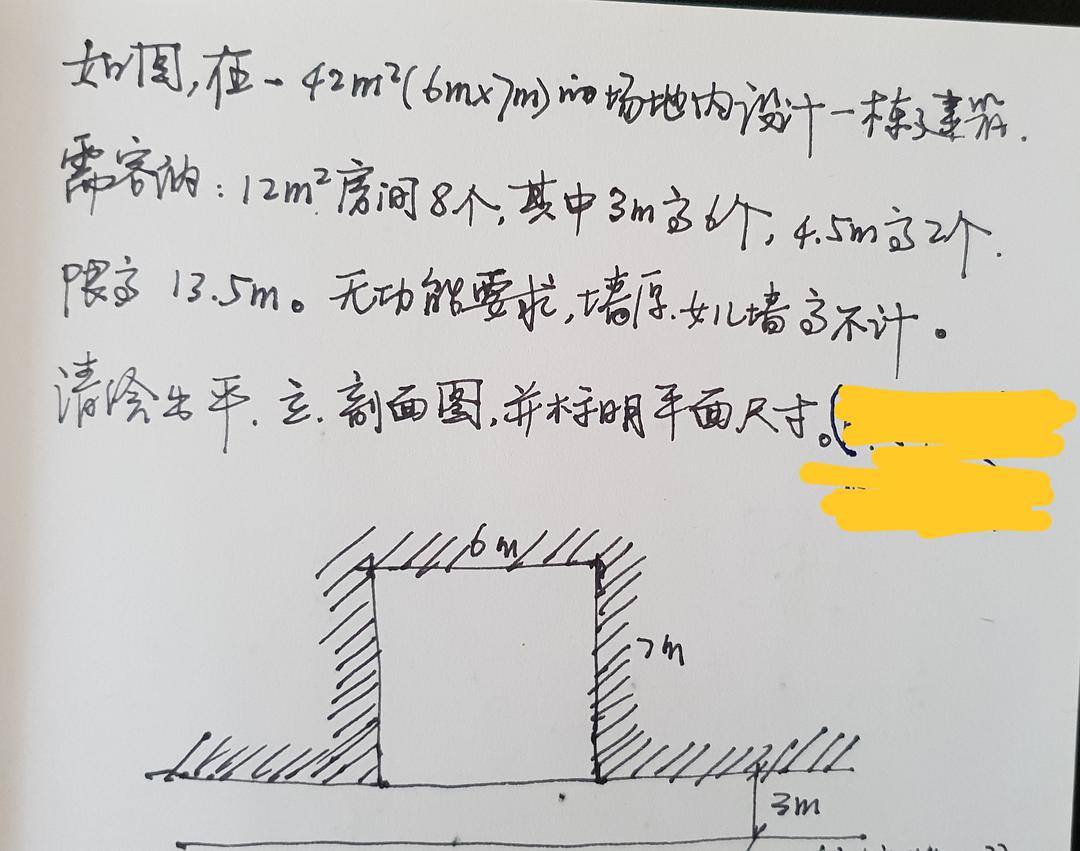 如图,在一42m²(6m×7m)的场地内设计一栋建筑.
需容纳:12m²房间8个,其中3m高6个,4.5m高2个.
限高 13.5m。无功能要求,墙厚.女儿墙高不计。
请绘出平.立.剖面图,并标明平面尺寸。(
6m
7m
3m